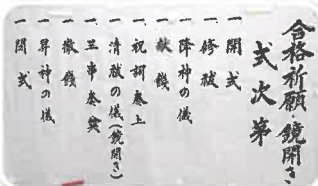 合格祈願・鏡開き
式次第
一 開式
一 修祓
一 降神の儀
一 献饌
一 祝詞奏上
一 清祓の儀(鏡開き)
一 玉串奉奠
一 撤饌
一 昇神の儀
一 閉式